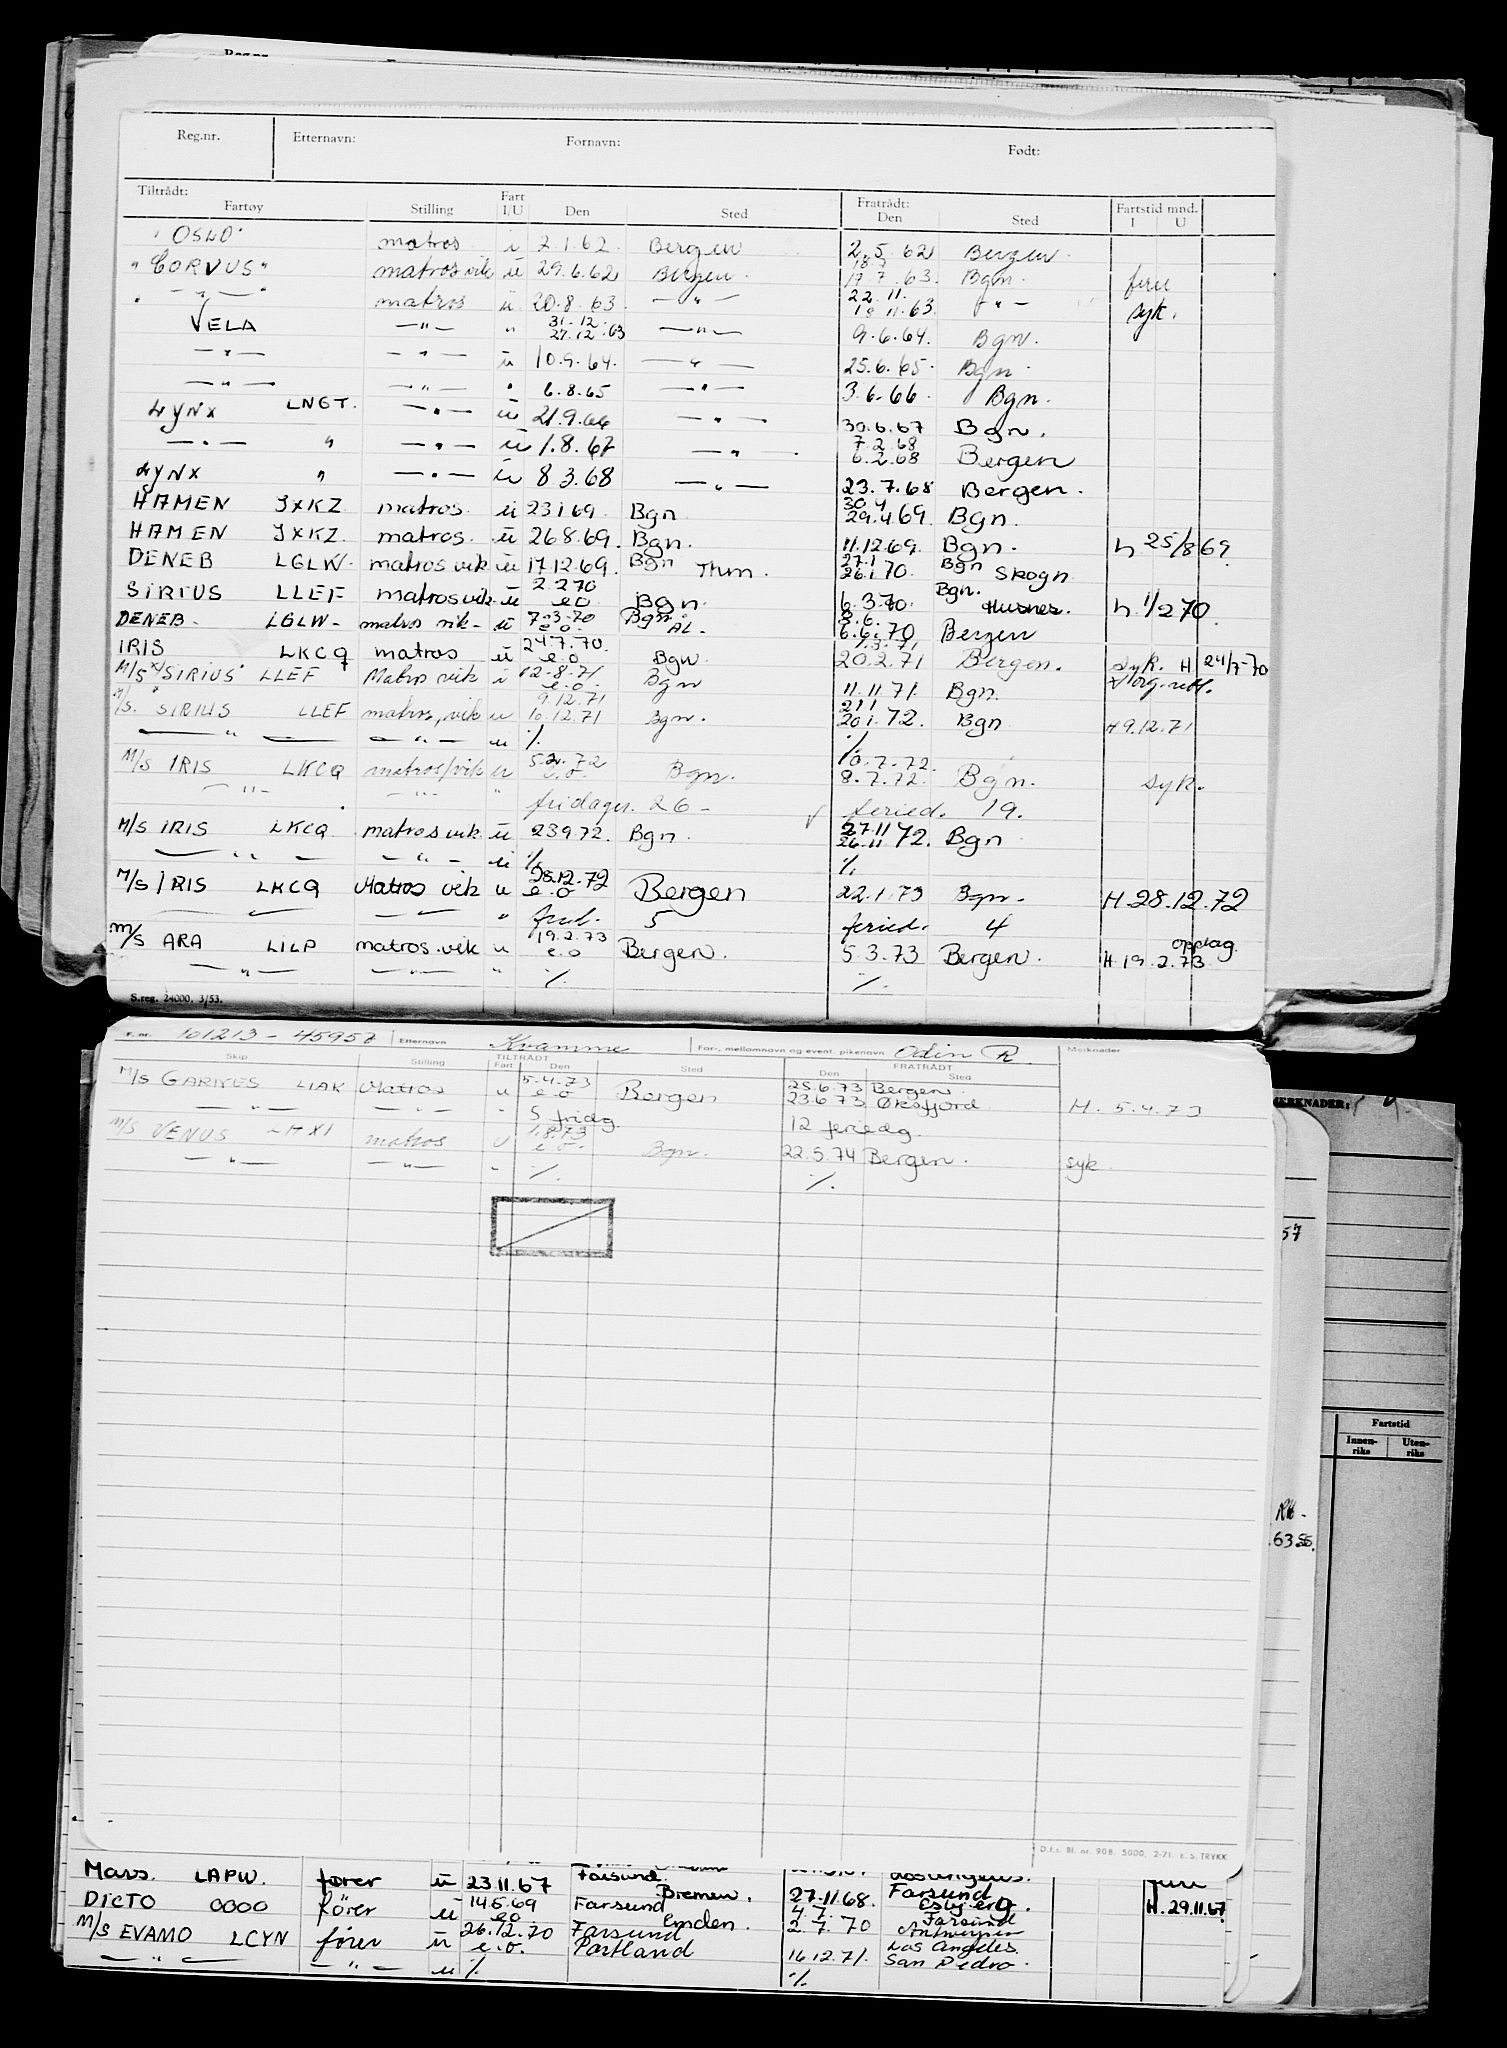 Reg.nr. Etternavn: Fornavn: Født:
Tiltrådt: Fart Fratrådt: Fartstid mnd.
Fartøy Stilling I/U Den Sted Den Sted I U
"OSLO" matros i 2.1.62. Bergen 2.5.62 Bergen.
"CORVUS" matros vik ü 29.6.62 Bergen. 18.7 17.7.63. Bgn. ferie
" — " — " matros ü 20.8.63. — " — 22.11. 19.11.63. — " — syk.
VELA — " — " 31.12. 27.12.63 — " — 9.6.64. Bgn.
— " — — " — ü 10.9.64. — " — 25.6.65. Bgn.
— " — — " — " 6.8.65 — " — 3.6.66. Bgn.
LYNX LNGT. — " — ü 21.9.66 — " — 30.6.67 Bgn.
— " — " — " — ü 1.8.67 — " — 7.2.68 6.2.68 Bergen
LYNX " — " — ü 8.3.68 — " — 23.7.68 Bergen.
HAMEN JXKZ matros ü 23.1.69. Bgn 30.4 29.4.69. Bgn.
HAMEN JXKZ. matros. ü 26.8.69. Bgn. 11.12.69. Bgn. h 25/8 69.
DENEB LGLW. matros vik ü 17.12.69. Bgn Thm. 27.1 26.1.70. Bgn Skogn
SIRIUS LLEF matros vik ü 2.2.70 e.o Bgn. 6.3.70. Bgn. Husnes. h. 1/2 70.
DENEB - LGLW - matros vik - ü 7.3.70 e.o. Bgn ÅL. 8.6. 6.6.70 Bergen
IRIS LKCQ matros ü 24.7.70. e.o Bgn. 1.3.71 20.2.71 Bergen. syk. H 24/7-70
M/S "SIRIUS" LLEF Matros vik u 12.8.71 e.o. Bgn 11.11.71. Bgn.
M/S. SIRIUS LLEF matros, vik u 9.12.71 10.12.71 Bgn. 21.1 20.1.72. Bgn H 9.12.71
— " — — " — u %. %.
M/S IRIS LKCQ matros/vik u 5.2.72 e.o. Bgn. 10.7.72. 8.7.72. Bgn. syk.
— " — — " — " fridager. 26 - feried. 19.
M/S IRIS LKCQ matros vik ü 23.9.72. Bgn. 27.11 26.11 72. Bgn
— " — — " — ü %. %.
M/S IRIS LKCQ Matros vik u 28.12.72 e.o Bergen 22.1.73 Bgn. H.28.12.72
— " — — " — " frid. 5 feried. 4
M/S ARA LILP matros.vik u 19.2.73 e.o Bergen. 5.3.73 Bergen. H.19.2.73 opptag.
— " — — " — " %. %.
S.reg. 24000. 3/53.
101213 - 45957 Etternavn Kvamme For-, mellomnavn og event. pikenavn Odin R Merknader
Skip Stilling TILTRÅDT Fart Den Sted FRATRÅDT Den Sted
M/S GARNES LIAK Matros u 5.4.73 e.o Bergen 25.6.73 Bergen 23.6.73 Øksfjord H. 5.4.73
— " — — " — " 5 fridg. 12 feriedg.
M/S VENUS matros u 1.8.73 e.o. Bgn. 22.5.74 Bergen. syk
— " — — " — " %. %.
MERKNADER:
57
Fartstid
Innen-riks Uten-riks
D.f.t. Bl. nr. 908. 5000, 2-71. E.S. TRYKK
Mars. LAPW. fører ü 23.11.67 Farsund. Bremen. 27.11.68. Farsund Esbjerg. H. 29.11.67
DICTO OOOO fører ü 14.5.69 e.o Farsund Emden. 4.7. 2.7.70 Farsund Antwerpen
M/S EVAMO LCYN fører ü 26.12.70 e.o. Farsund Portland 16.12.71. Los Angeles. San Pedro.
— " — — " — ü %. %.